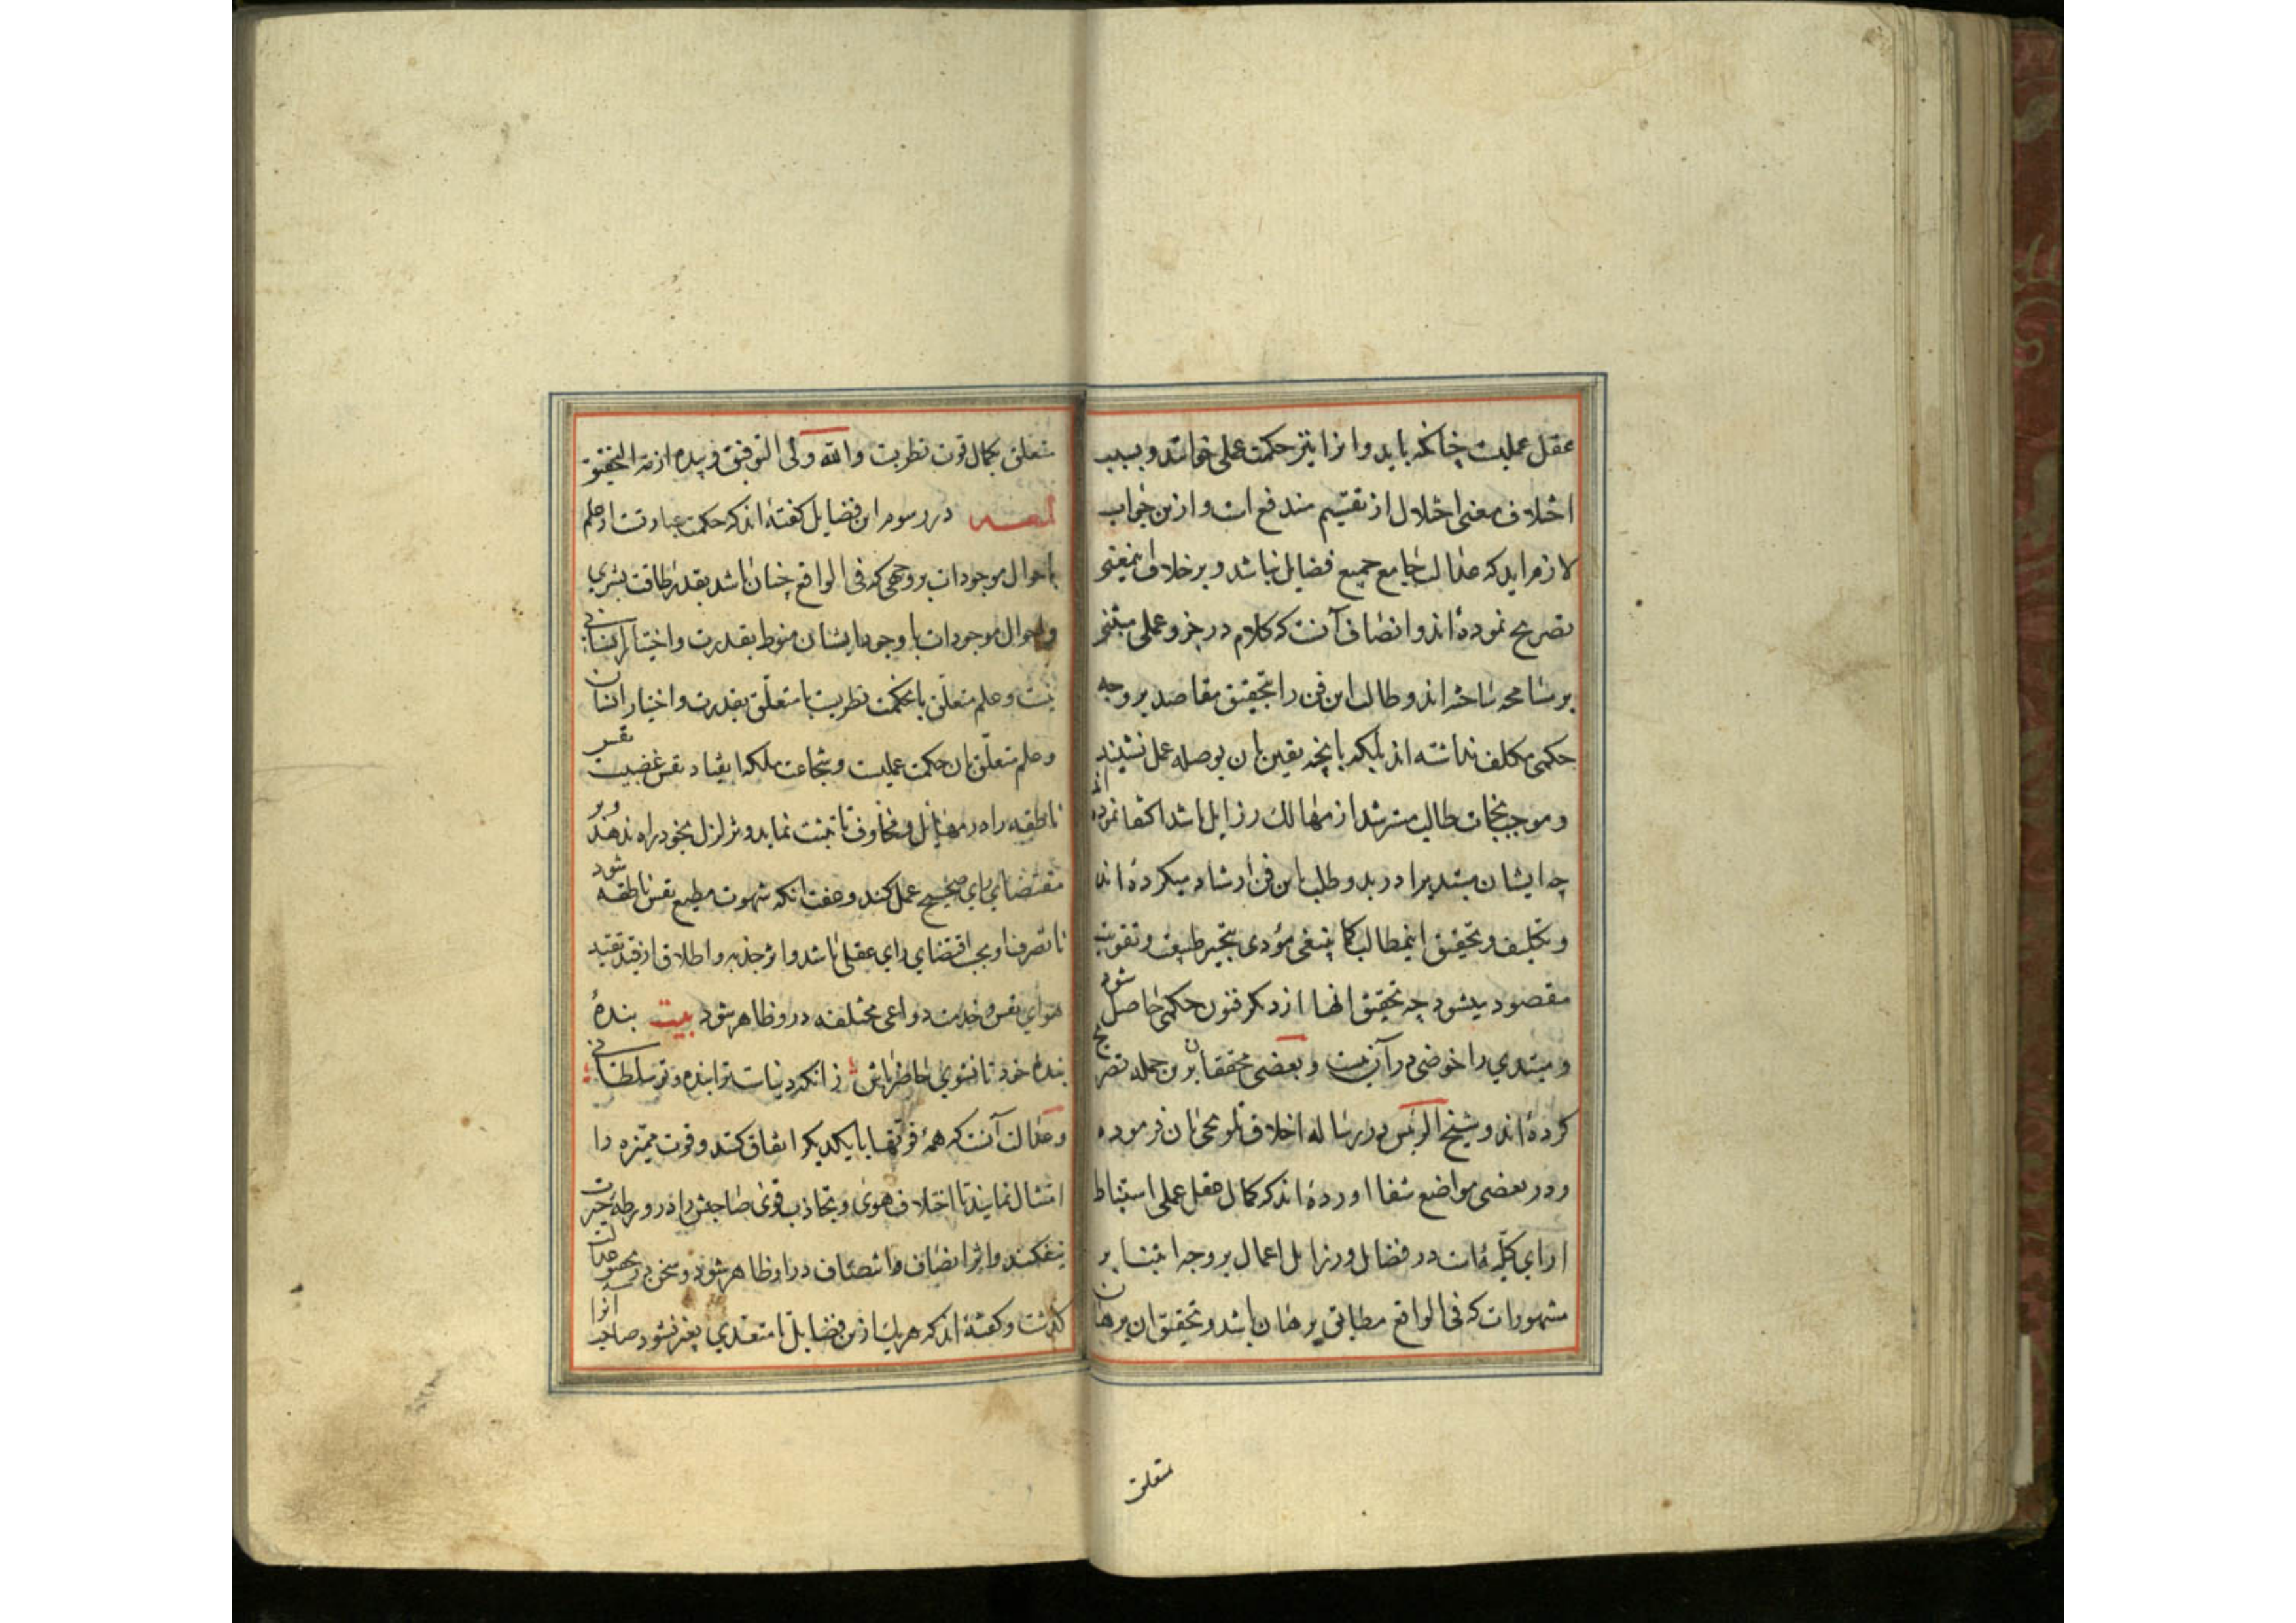 عقل عملیست چنانکه باید و انرا نیز حکمت عملی خوانند و بسبب
اختلاف معنی اختلال از تقسیم مندفع است و ازین جواب
لازم اید که عدالت جامع جمیع فضایل نباشد و بر خلاف اینمعنی
تصریح نموده‌اند و انصاف آنست که کلام در جزو عملی مبتنی
بر مسامحه ساخته‌اند و طالب این فن را بتحقیق مقاصد بر وجه
حکمی مکلف نداشته‌اند بلکه بانچه یقین بان بوصله عمل نشیند
و موجب نجات طالب مسترشد از مهالک رزایل باشد اکتفا نموده اند
چه ایشان مبتدیرا در بدو طلب باین فن ارشاد میکرده‌اند
و تکلیف و تحقیق اینمطالب کما ینبغی مؤدی بتحیر طبیعت و تفویت
مقصود میشود چه تحقیق انها از دیگر فنون حکمی حاصل شود
و مبتدی را خوضی در آن نیست و بعضی محققان برین جمله تصریح
کرده‌اند و شیخ الرئیس در رساله اخلاق تلویحی بان فرموده
و در بعضی مواضع شفا اورده‌اند که کمال عقل عملی استنباط
ارای کلیه است در فضایل و رزایل اعمال بر وجه ابتنا بر
مشهورات که فی الواقع مطابق برهان باشد و تحقیق ان برهان
متعلق
متعلق بکمال قوت نظریست والله ولی التوفیق و بیده ازمة التحقیق
لمعه در رسوم این فضایل گفته‌اند که حکمت عبارتست از علم
باحوال موجودات بر وجهی که فی الواقع چنان باشد بقدر طاقت بشری
و احوال موجودات یا وجود ایشان منوط بقدرت و اختیار انسانی
نیست و علم متعلق بان حکمت نظریست یا متعلق بقدرت و اختیار انسان
و علم متعلق بان حکمت عملیست و شجاعت ملکه انقیاد نفس غضبیست نفس
ناطقه را در مهایل و مخاوف تا تثبت نماید و تزلزل بخود راه ندهد و بر
مقتضای رای صحیح عمل کند و عفت انکه شهوت مطیع نفس ناطقه شود
تا تصرفات او بحسب اقتضای رای عقلی باشد و اثر حریه و اطلاق از قید تقید
هوای نفس و خدمت دواعی مختلفه در و ظاهر شود بیت بندهٔ
بنده خود تا نشوی حاضر باش زانکه دنیاست ترا بنده و تو سلطانی
و عدالت آنست که همه قوتها با یکدیگر اتفاق کنند و قوت ممیزه را
امتثال نمایند تا اختلاف هوی و تجاذب قوی صاحبش را در ورطه حیرت
نیفکند و اثر انصاف و انتصاف در او ظاهر شود و سخن در تحقیق عدالت
گذشت و گفته‌اند که هر یک ازین فضایل تا متعدی بغیر نشود صاحب انرا